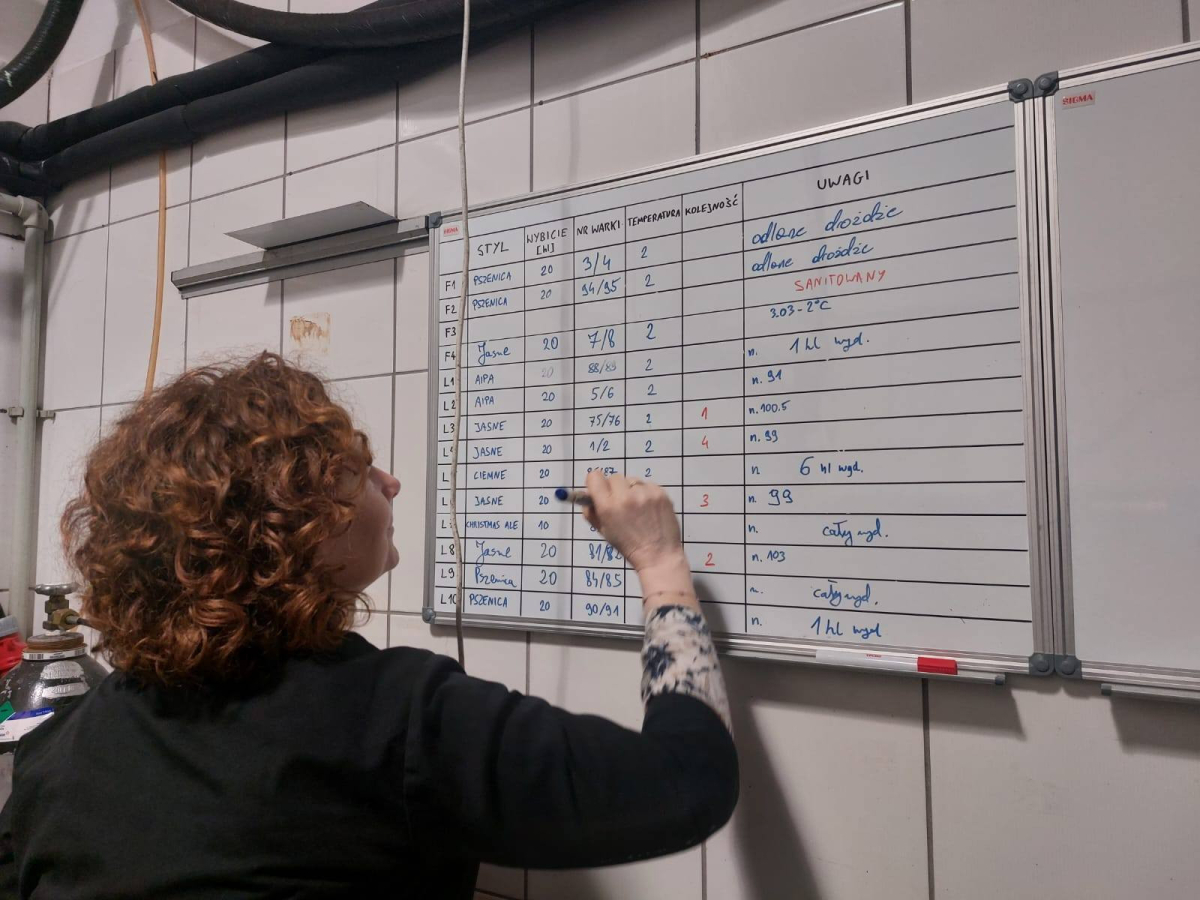 SIGMA
SIGMA
STYL WYBICIE [hl] NR WARKI TEMPERATURA KOLEJNOŚĆ UWAGI
F1 PSZENICA 20 3/4 2 odlane drożdże
F2 PSZENICA 20 94/95 2 odlane drożdże
F3 SANITOWANY
F4 Jasne 20 7/8 2 3.03-2°C
L1 AIPA 20 88/89 2 n. 1 hl wyd.
L2 AIPA 20 5/6 2 n. 91
L3 JASNE 20 75/76 2 1 n. 100.5
L JASNE 20 1/2 2 4 n. 99
L CIEMNE 20 2 n 6 hl wyd.
L JASNE 20 3 n. 99
L CHRISTMAS ALE 10 n. cały wyd.
L8 Jasne 20 81/82 2 n. 103
L9 Pszenica 20 84/85 n. cały wyd.
L10 PSZENICA 20 90/91 n. 1 hl wyd